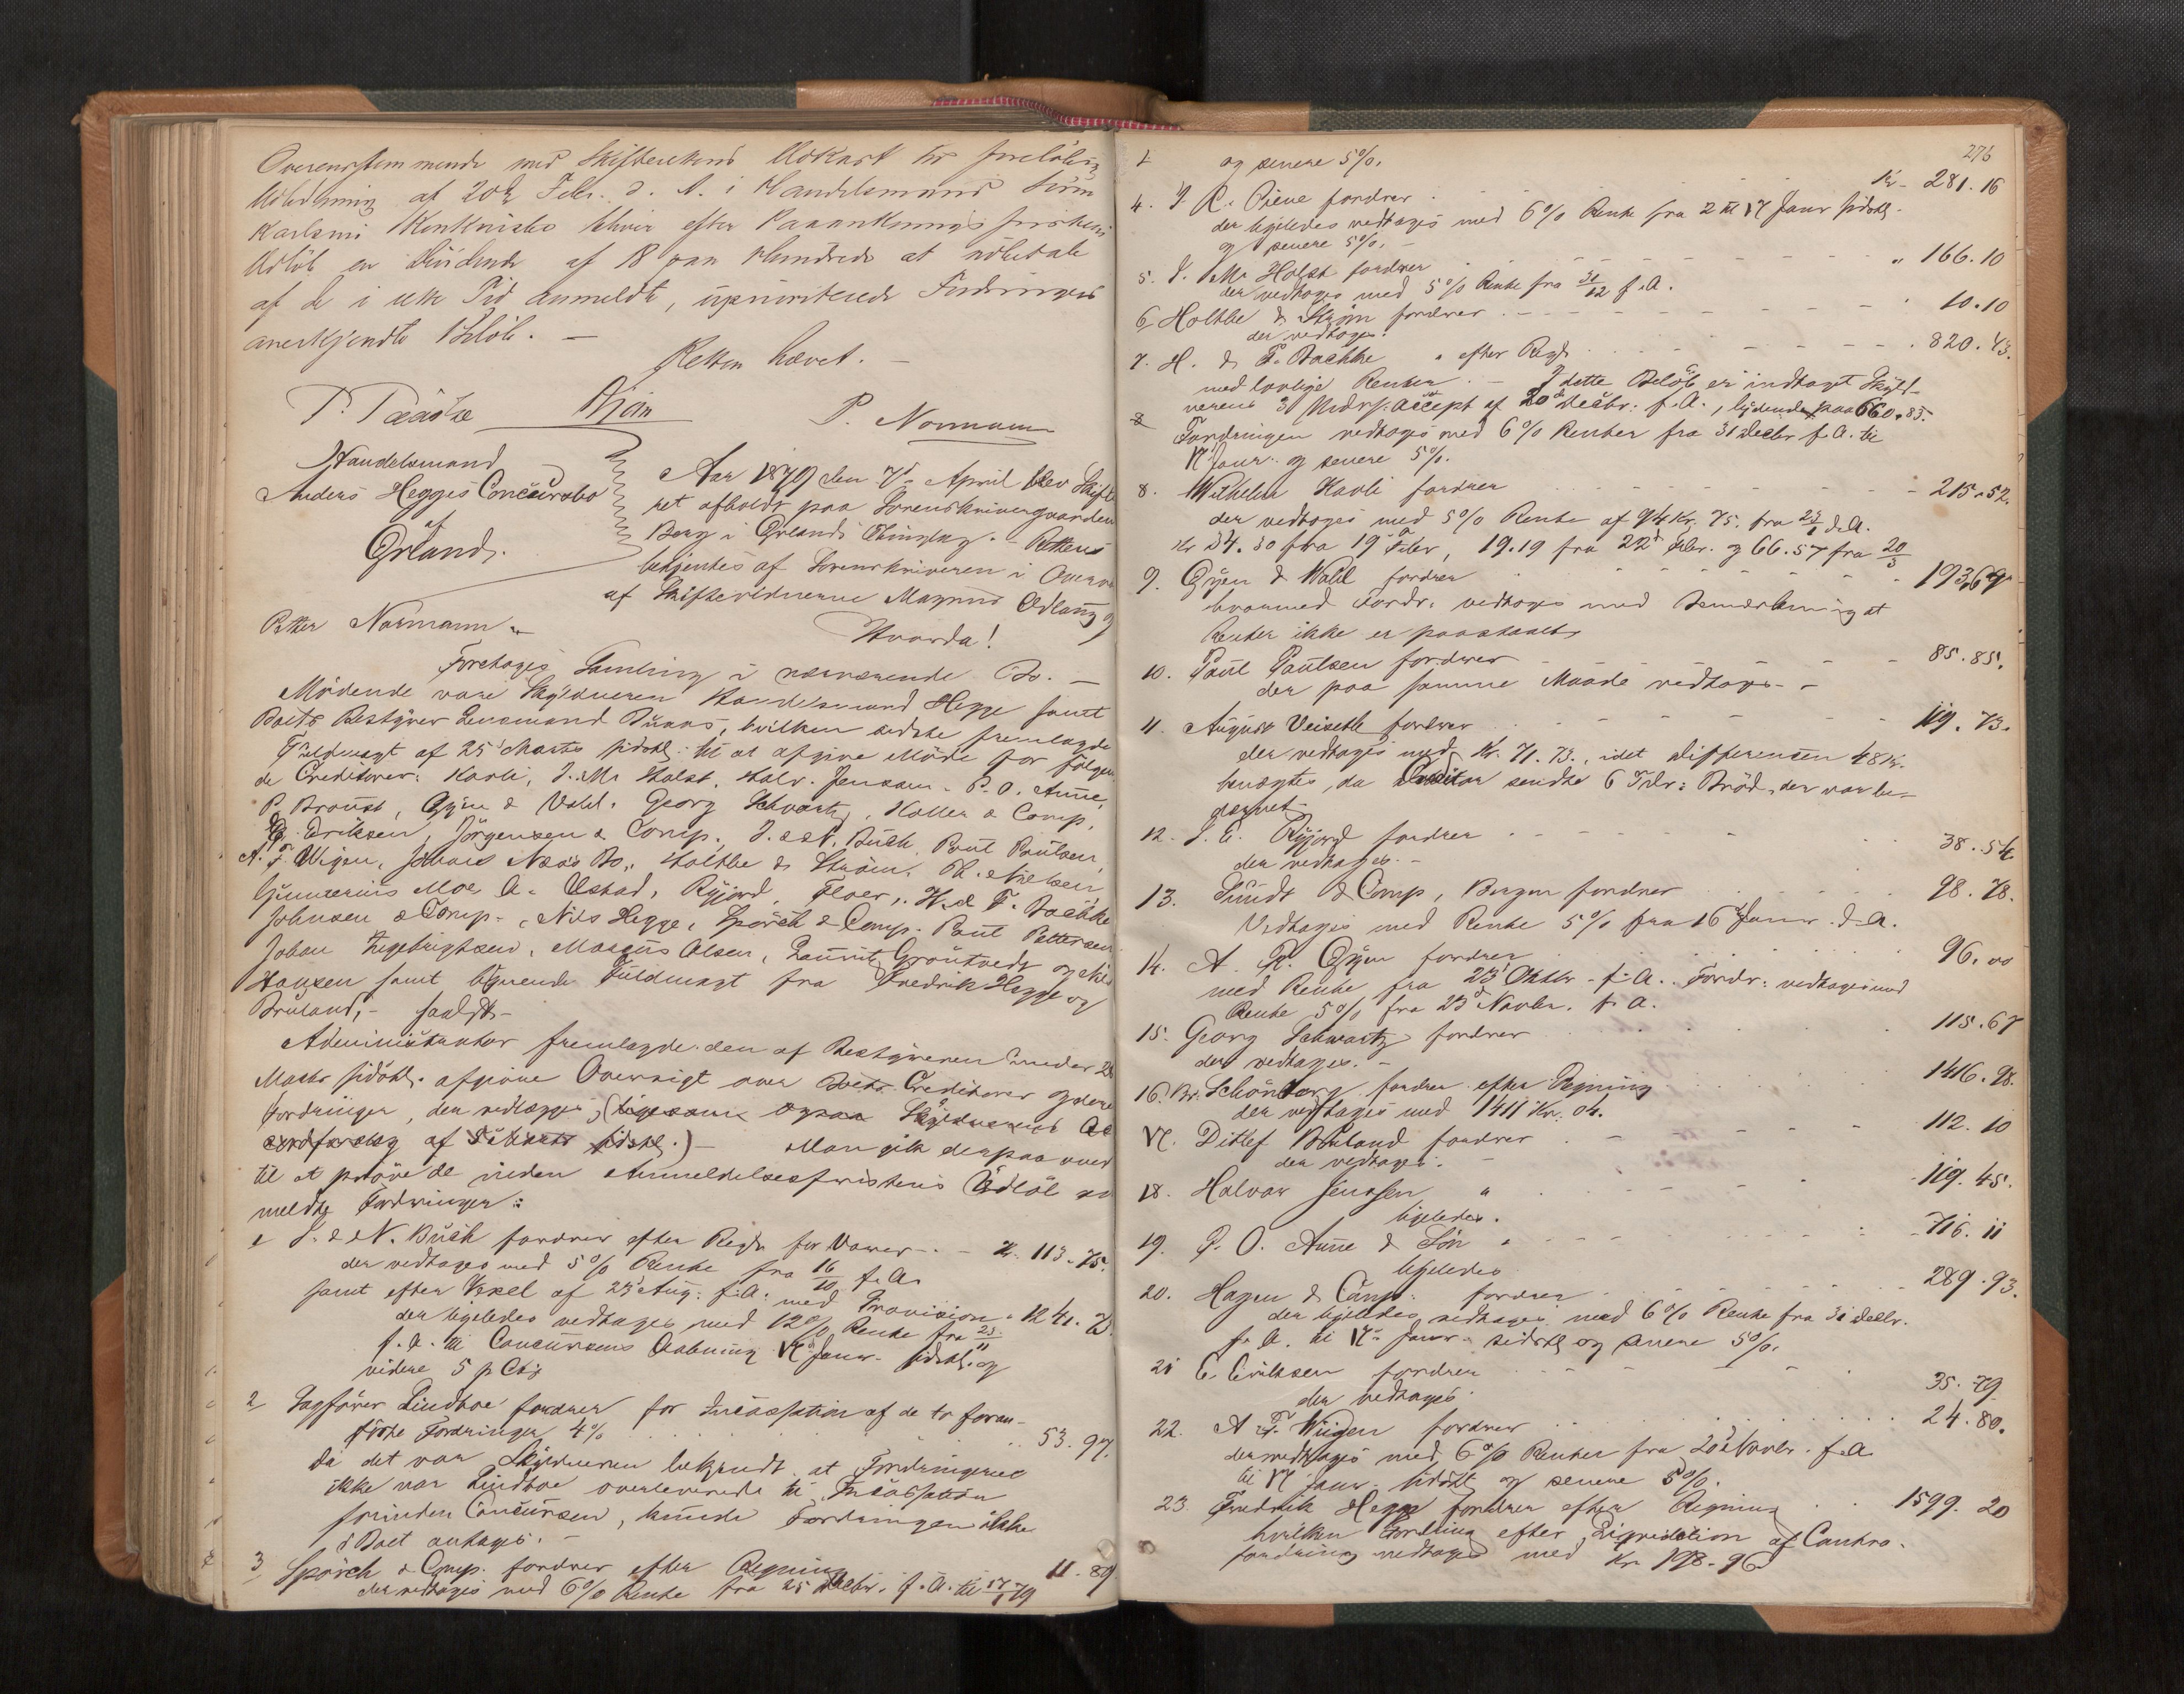 Overensstemmende med Skifterettens Udkast til foreløbig
Udlodning af 20de Febr. d. A. i Handelsmand
Karlsens Konkursbo bliver efter Paaankningsfristens
Udløb en Dividende af 18 paa Hundrede at udbetale
af de i rette Tid anmeldte, uprioriterede Fordringers
anerkjendte Beløb. —
Retten hævet. —
P. Normann
Handelsmand
Anders Hegges Concursbo
af
Ørland.
Aar 1879 den 7de April blev Skifte
ret afholdt paa Sorenskrivergaarden
Berg i Ørlands Thinglag. – Rettens
betjentes af Sorenskriveren i Overvær
af Skiftevidnerne Magnus Udlaug og
Petter Normann
Hvorda!
Foretoges Samling i nærværende Bo. —
Mødende vare Skyldneren Handelsmand Hegge samt
Boets Bestyrer Lensmand Duaas, hvilken sidste fremlagde
Fuldmagt af 25 Marts sidstl. til at afgive Møde for følgen
de Creditorer: Kavli, I. M. Holst, Halv. Jenssen, P. O. Aune,
P. Broust, Øyen & Wahl, Georg Schwartz, Koller & Comp,
E. Eriksen, Jørgensen & Comp, I. & N. Buch, Poul Poulsen,
A. F. Wigen, Næss Bo, Holtbe & Strøm, Th. Nielsen,
Gunnerius Moe, A. Ulstad, Ryjord, Floer, H. & F. Bachke
Johnsen & Comp., Nils Hegge, Spørck & Comp. Poul Pettersen
Johan Ingebrigtsen, Marcus Olsen, Laurits Grøntvedt og Nils
Hansen samt lignende Fuldmagt fra Fredrik Hegge og
Bruland, –
Administrator fremlagde den af Bestyreren under 28
Marts sidstl. afgivne Oversigt over Boets Creditorer og deres
Fordringer, der vedlægges, (ligesom ogsaa Skyldnerens
af sidstl.) – Man gik derpaa over
til at prøve de inden Anmeldelsesfristens Udløb an
meldte Fordringer:
1 I. & N. Buch fordrer efter Regn. for Varer – Kr. 113.75.
der vedtages med 5% Rente fra 16/10 f. A.
samt efter Vexel af 23 Aug. f. A. med Provision " 1241.73.
der ligeledes vedtages med 12% Rente fra 23/11
f. A. til Concursens Aabning 17 Janr. sidstl. og
videre 5 p Ct.
2 Sagfører Lindboe fordrer for Incassation af de to foran-
førte Fordringer 4% 53.97.
Da det var Skyldneren bekjendt at Fordringerne
ikke var Lindboe overleverede til Incassation
forinden Concursen, kunde Fordringen ikke
i Boet antages. —
3 Spørck & Comp. fordrer efter Regning 11.89
der vedtages med 6% Rente fra 25 Decbr. f. A. til 17/1 79
276
og senere 5%.
4. I. R. Piene fordrer Kr. 281.16
der ligeledes vedtages med 6% Rente fra 2 til 17 Janr sidstl.
og senere 5%. –
5. I. M. Holst fordrer " 166.10
der vedtages med 5% Rente fra 31/12 f. A.
6. Holtbe & Strøm fordrer 10.10
der vedtages.
7. H. & F. Bachke " efter Regn. 820.43.
med lovlige Renter. – I dette Beløb er indtaget Skyld-
nerens 3 Mdrs. accept af 20de Decbr. f. A., lydende paa 660.83.
Fordringen vedtages med 6% Renter fra 31 Decbr f. A. til
17 Janr. og senere 5%.
8. Wilhelm Kavli fordrer 215.52.
der vedtages med 5% Rente af 94 Kr. 75. fra 23/1 d. A.
Kr 34.30 fra 19 Febr, 19.19 fra 22 Febr. og 66.57 fra 20/3
9. Øyen & Wahl fordrer 193.69
hvormed Fordr. vedtages med Bemærkning at
Renter ikke er paastaaet
10. Poul Poulsen fordrer 85.85.
der paa samme Maade vedtages –
11. August Veiseth fordrer 119.73.
der vedtages med Kr. 71.73., idet Differencen 48 Kr.
benægtes, da Creditor sendte 6 Tdr: Brød, der var be-
dærvet
12. I. E. Ryjord fordrer 38.54
der vedtages. –
13. Sundt & Comp, Bergen fordrer 98.78.
Vedtages med Rente 5% fra 16 Janr. d. A.
14. A. R. Øyen fordrer 96.00
med Rente fra 23 Oktbr. f. A. Fordr. vedtages med
Rente 5% fra 23 Novbr. f. A.
15. Georg Schwartz fordrer 115.67
der vedtages. –
16. Br. Schönberg fordrer efter Regning 1416.98.
der vedtages med 1411 Kr. 04.
17. Ditlef Bruland fordrer 112.10
der vedtages. –
18. Halvor Jenssen " 119.45.
ligeledes.
19. P. O. Aune & Søn " 716.11
ligeledes
20. Hagen & Comp. fordrer 289.93.
der ligeledes vedtages med 6% Rente fra 31 Decbr.
f. A. til 17 Janr. sidstl og senere 5%.
21 E. Eriksen fordrer 35.79
der vedtages.
22. A. F. Wiigen fordrer 24.80.
der vedtages med 6% Renter fra 20 Novbr. f. A.
til 17 Janr. sidstl og senere 5%.
23. Fredrik Hegge fordrer efter Regning 1599.20
hvilken Fordring efter Liqvidation af Contra-
fordring vedtages med Kr. 198.96